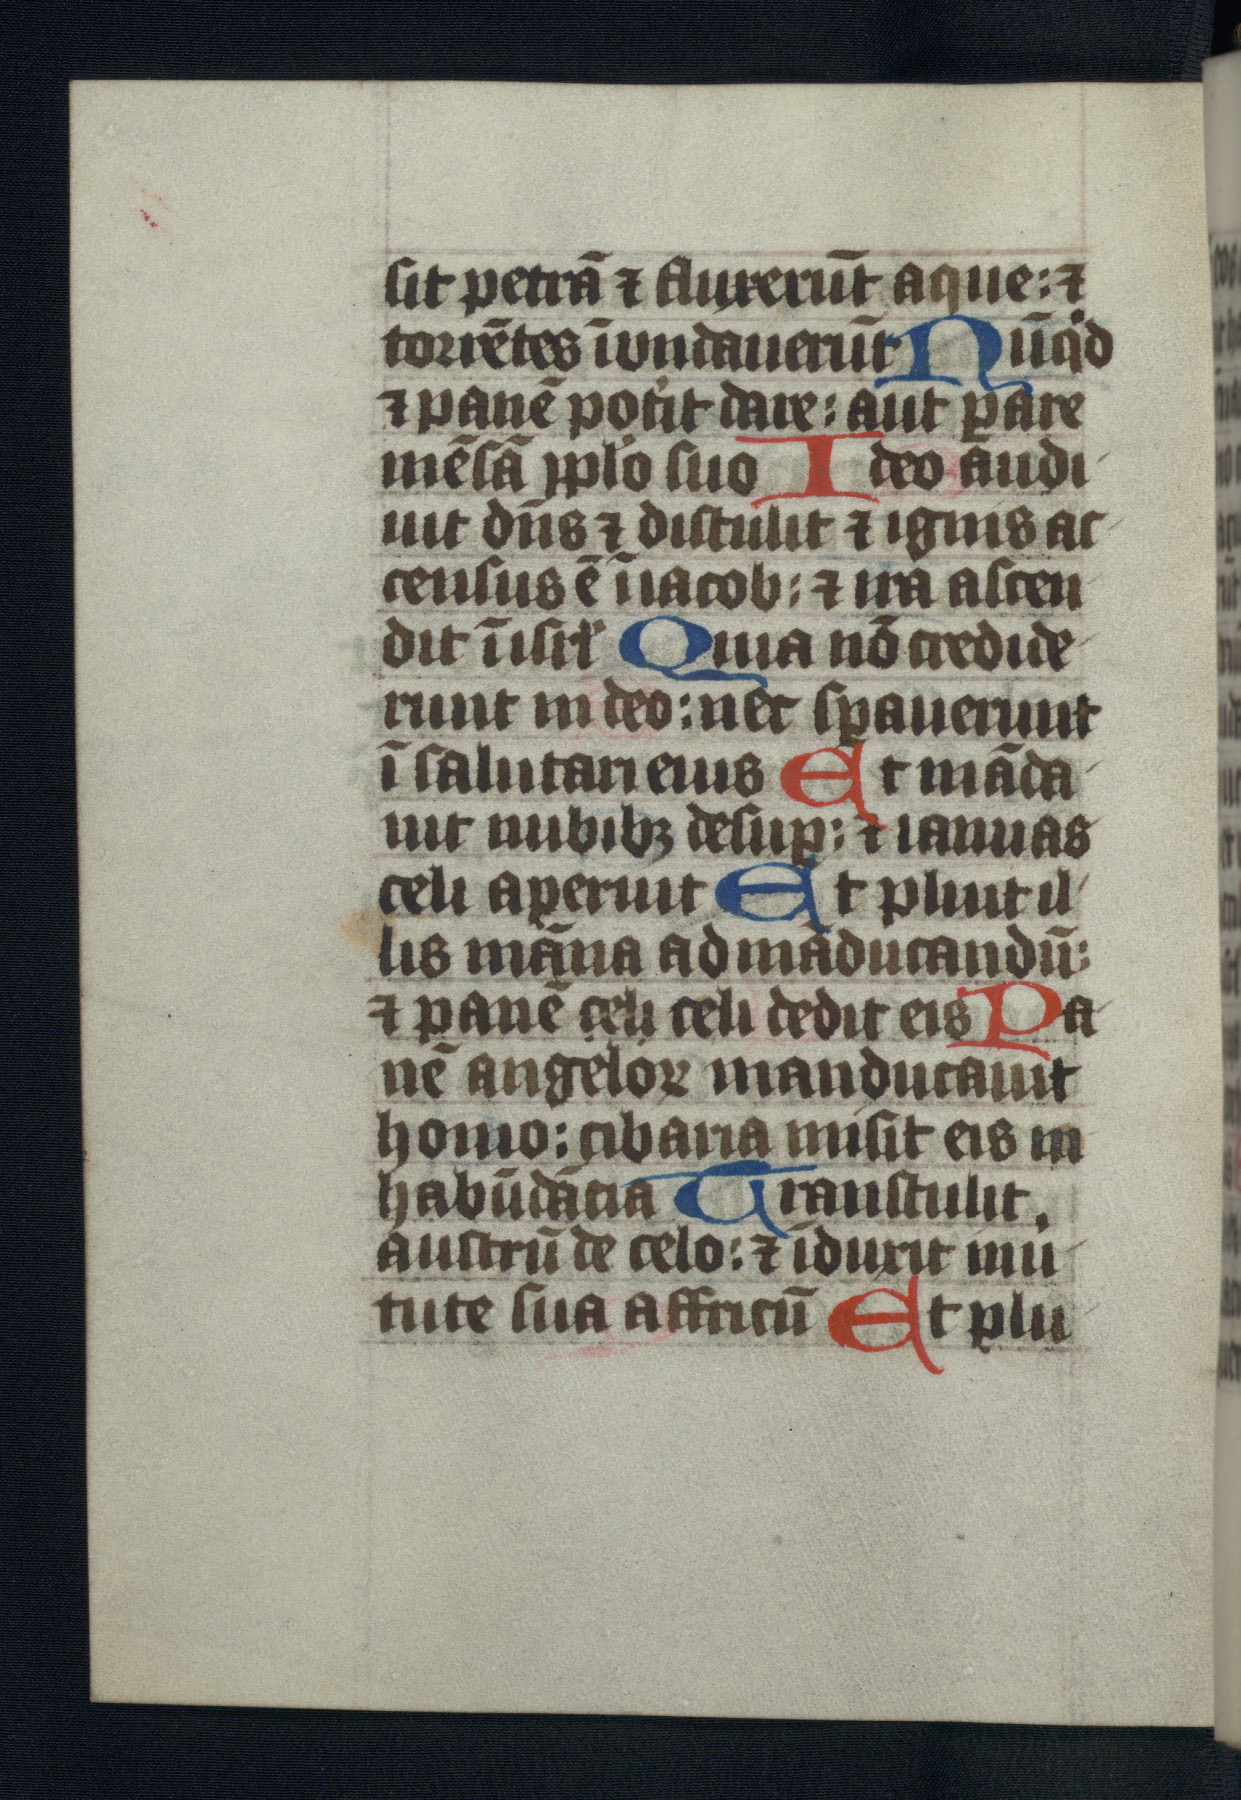 sit petrā ⁊ fluxerūt aque: ⁊
torrētes īvndauerūt Nūqͥd
⁊ panē pot̉it dare: aut ꝑare
mēsā pplo̅ suo Ideo audi
uit dn̄s ⁊ distulit ⁊ ignis ac
census ē ī iacob: ⁊ ira ascen
dit ī isrl̄ Quia nō credide
runt in deo: nec sꝑauerunt
ī salutari eius Et māda
uit nubibꝫ desuꝑ: ⁊ ianuas
celi aperuit Et pluit il
lis māna ad māducandū:
⁊ panē celi celi dedit eis Pa
nē angeloꝝ manducauit
homo: cibaria misit eis in
habūdācia Transtulit.
austrū de celo: ⁊ īduxit īuir
tute sua affricū Et plu